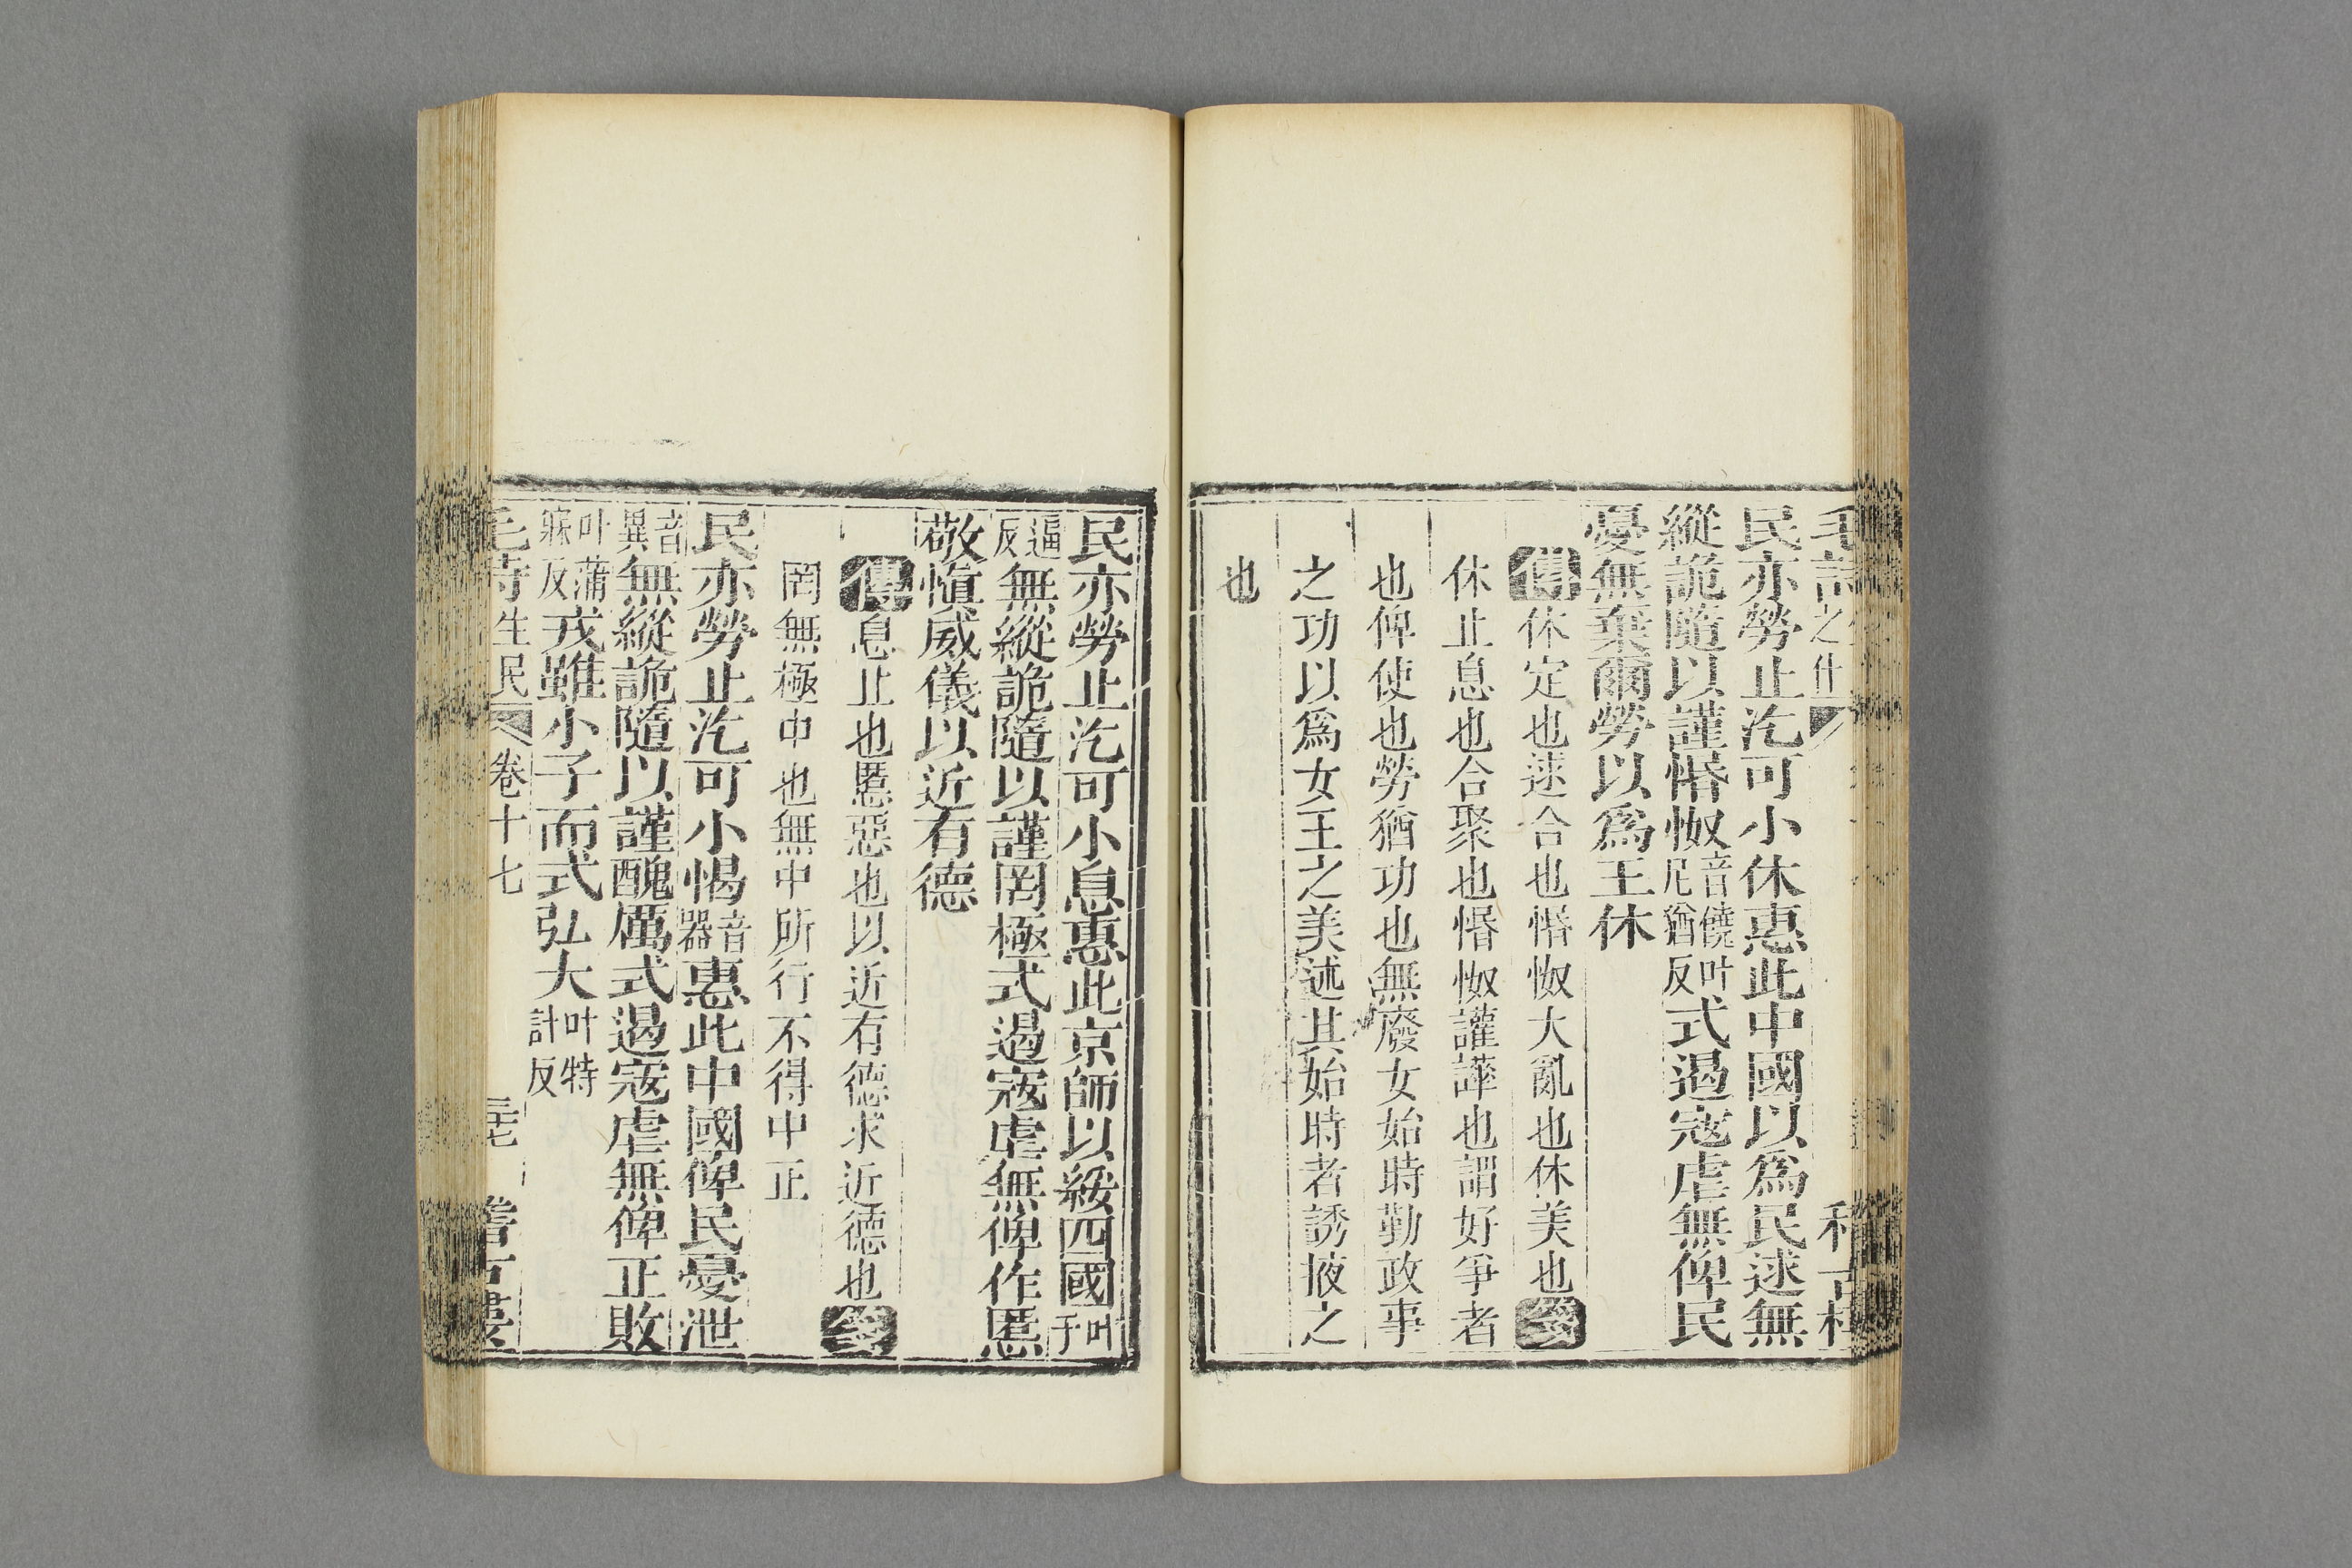 民亦勞止汔可小休惠此中國以爲民逑無
縱詭隨以謹惛怓音饒叶尼猶反式遏寇虐無俾民
憂無棄爾勞以爲王休
傳休定也逑合也惛怓大亂也休美也箋
休止息也合聚也惛怓讙譁也謂好爭者
也俾使也勞猶功也無廢女始時勤政事
之功以爲女王之美述其始時者誘掖之
也
民亦勞止汔可小息惠此京師以綏四國叶于
逼反無縱詭隨以謹罔極式遏寇虐無俾作慝
敬愼威儀以近有德
傳息止也慝惡也以近有德求近德也箋
罔無極中也無中所行不得中正
民亦勞止汔可小愒音器惠此中國俾民憂泄
音異無縱詭隨以謹醜厲式遏寇虐無俾正敗
叶蒲寐反戎雖小子而式弘大叶特計反
生民 卷十七